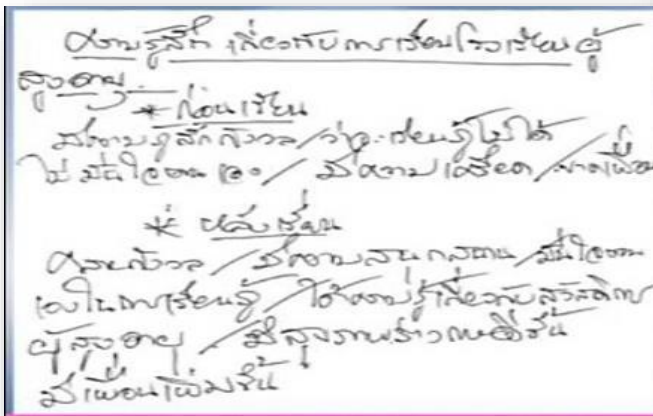 ความรู้สึก เกี่ยวกับการเรียนโรงเรียนผู้
สูงอายุ
* ก่อนเรียน
มีความรู้สึกกังวล / ว่าจะเรียนรู้ไม่ได้
ไม่มั่นใจตนเอง / มีความเครียด / ขาดเพื่อน
* หลังเรียน
คลายกังวล / มีความสนุกสนาน / มั่นใจตน
เองในการเรียนรู้ / ได้ความรู้เกี่ยวกับสวัสดิการ
ผู้สูงอายุ / มีสุขภาพร่างกายดีขึ้น
มีเพื่อนเพิ่มขึ้น